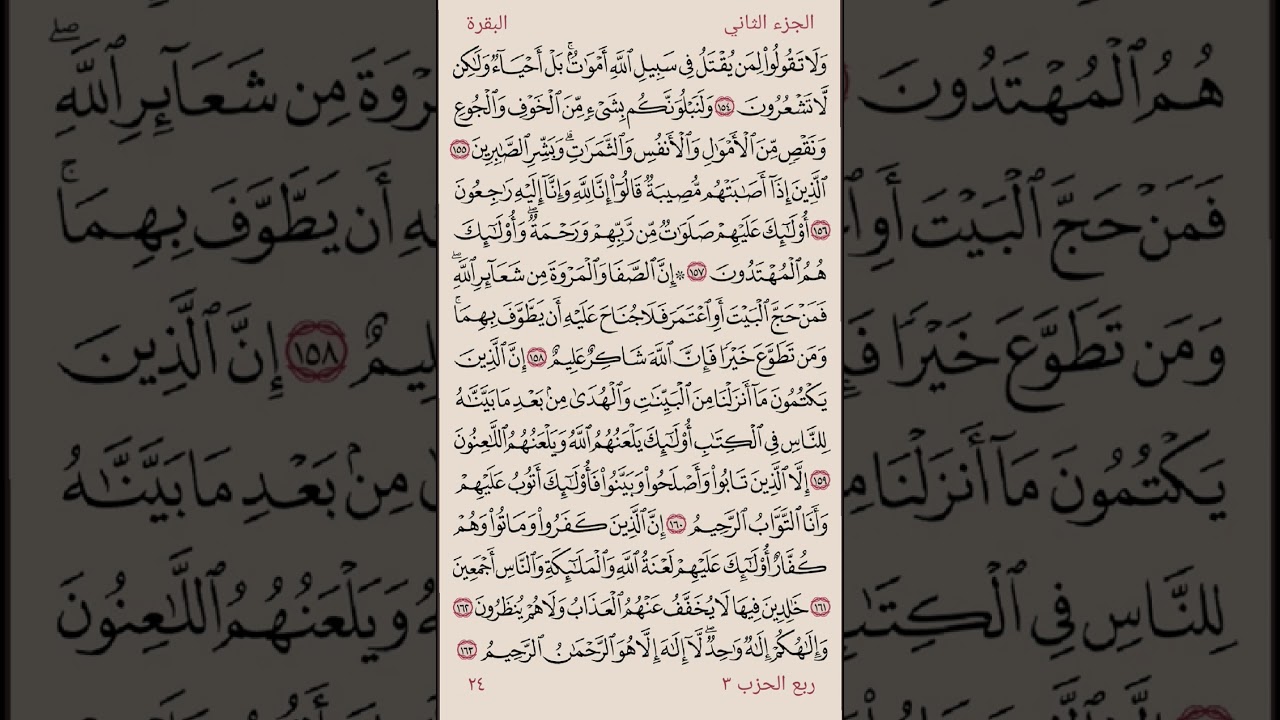 الجزء الثاني
البقرة
وَلَا تَقُولُوا۟ لِمَن يُقْتَلُ فِى سَبِيلِ ٱللَّهِ أَمْوَٰتٌۢ ۚ بَلْ أَحْيَآءٌ وَلَٰكِن
لَّا تَشْعُرُونَ ١٥٤ وَلَنَبْلُوَنَّكُم بِشَىْءٍ مِّنَ ٱلْخَوْفِ وَٱلْجُوعِ
وَنَقْصٍ مِّنَ ٱلْأَمْوَٰلِ وَٱلْأَنفُسِ وَٱلثَّمَرَٰتِ ۗ وَبَشِّرِ ٱلصَّٰبِرِينَ ١٥٥
ٱلَّذِينَ إِذَآ أَصَٰبَتْهُم مُّصِيبَةٌ قَالُوٓا۟ إِنَّا لِلَّهِ وَإِنَّآ إِلَيْهِ رَٰجِعُونَ
١٥٦ أُو۟لَٰٓئِكَ عَلَيْهِمْ صَلَوَٰتٌ مِّن رَّبِّهِمْ وَرَحْمَةٌ ۖ وَأُو۟لَٰٓئِكَ
هُمُ ٱلْمُهْتَدُونَ ١٥٧ ۞ إِنَّ ٱلصَّفَا وَٱلْمَرْوَةَ مِن شَعَآئِرِ ٱللَّهِ ۖ
فَمَنْ حَجَّ ٱلْبَيْتَ أَوِ ٱعْتَمَرَ فَلَا جُنَاحَ عَلَيْهِ أَن يَطَّوَّفَ بِهِمَا ۚ
وَمَن تَطَوَّعَ خَيْرًا فَإِنَّ ٱللَّهَ شَاكِرٌ عَلِيمٌ ١٥٨ إِنَّ ٱلَّذِينَ
يَكْتُمُونَ مَآ أَنزَلْنَا مِنَ ٱلْبَيِّنَٰتِ وَٱلْهُدَىٰ مِنۢ بَعْدِ مَا بَيَّنَّٰهُ
لِلنَّاسِ فِى ٱلْكِتَٰبِ أُو۟لَٰٓئِكَ يَلْعَنُهُمُ ٱللَّهُ وَيَلْعَنُهُمُ ٱللَّٰعِنُونَ
١٥٩ إِلَّا ٱلَّذِينَ تَابُوا۟ وَأَصْلَحُوا۟ وَبَيَّنُوا۟ فَأُو۟لَٰٓئِكَ أَتُوبُ عَلَيْهِمْ
وَأَنَا ٱلتَّوَّابُ ٱلرَّحِيمُ ١٦٠ إِنَّ ٱلَّذِينَ كَفَرُوا۟ وَمَاتُوا۟ وَهُمْ
كُفَّارٌ أُو۟لَٰٓئِكَ عَلَيْهِمْ لَعْنَةُ ٱللَّهِ وَٱلْمَلَٰٓئِكَةِ وَٱلنَّاسِ أَجْمَعِينَ
١٦١ خَٰلِدِينَ فِيهَا لَا يُخَفَّفُ عَنْهُمُ ٱلْعَذَابُ وَلَا هُمْ يُنظَرُونَ ١٦٢
وَإِلَٰهُكُمْ إِلَٰهٌ وَٰحِدٌ ۖ لَّآ إِلَٰهَ إِلَّا هُوَ ٱلرَّحْمَٰنُ ٱلرَّحِيمُ ١٦٣
ربع الحزب ٣
٢٤